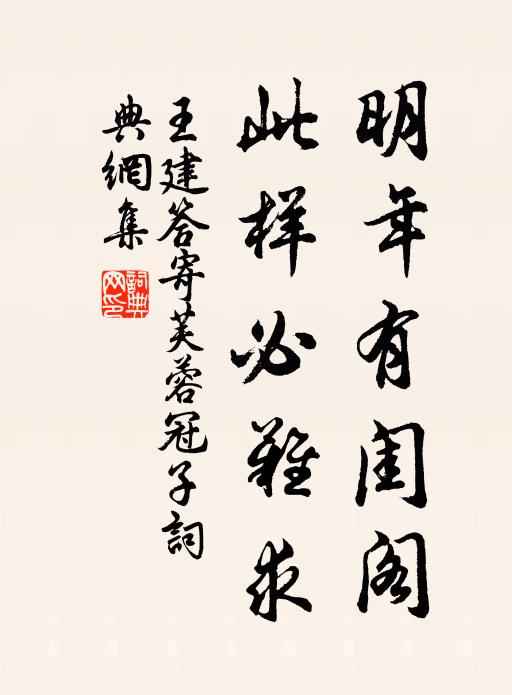 明年有闺阁
此样必难求
王建答寄芙蓉冠子詞
典網集
詞典網印